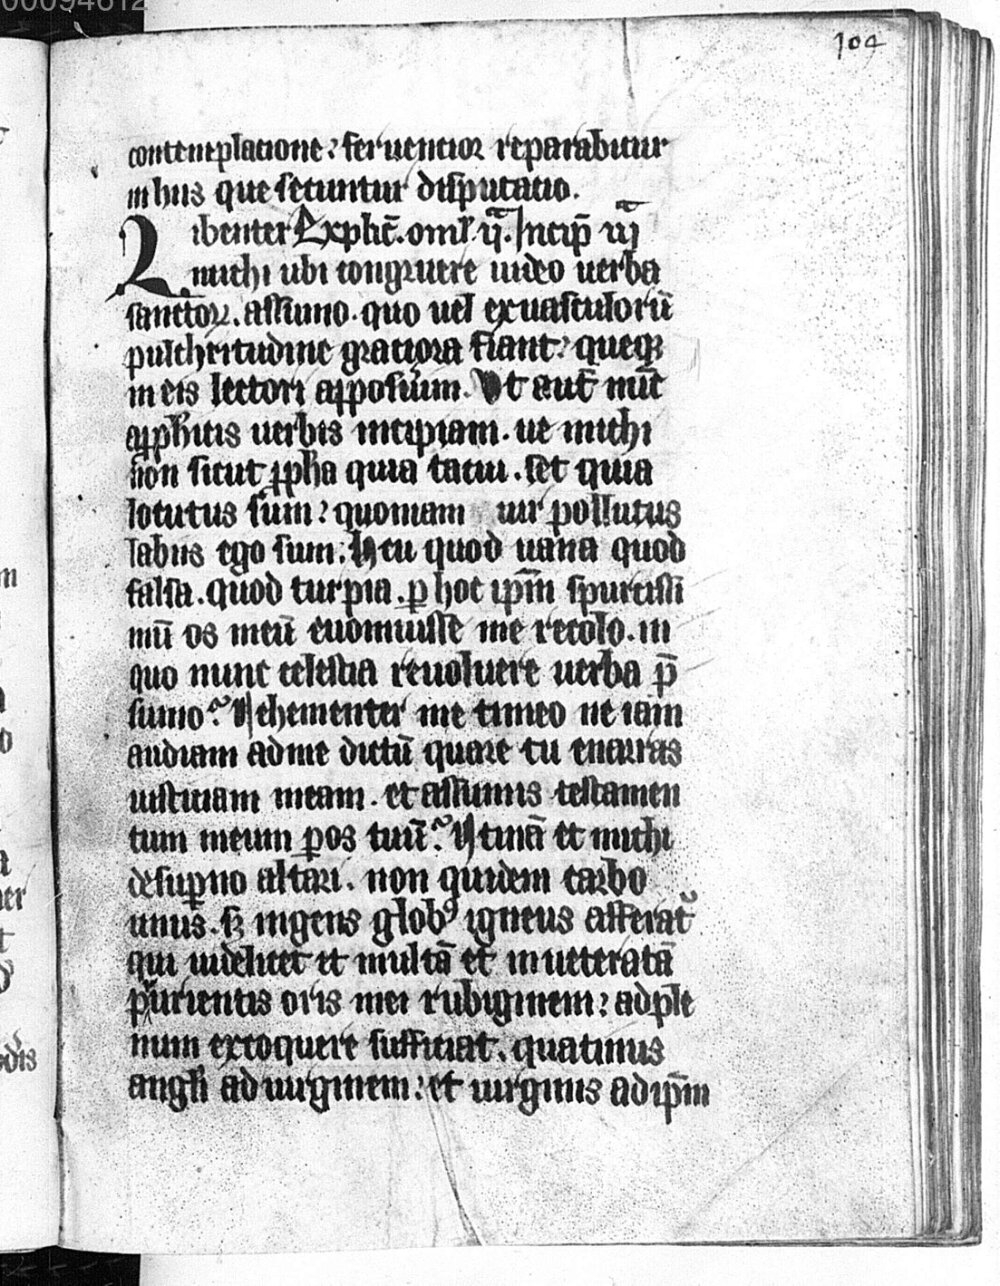 00094612
104
contemplatione? feruentior reparabitur
in hiis que secuntur disputatio.
Libenter Explic̄. oml̄. ija. Incip̄ iija
michi ubi congruere uideo uerba
sanctoꝝ. assumo. quo uel ex uasculorū
pulchritudine graciora fiant? queqꝫ
in eis lectori apposu͛im. Vt aut̄ nūc
a ꝓph̄icis uerbis incipiam. ue michi
non sicut ꝓph̄a quia tacui. set quia
locutus sum? quoniam uir pollutus
labiis ego sum. Heu quod uana quod
falsa. quod turpia. ꝑ hoc ip̄m spurcissi
mū os meū euomuisse me recolo. in
quo nunc celestia reuoluere uerba p̄
sumo? Vehementer me timeo ne iam
audiam ad me dictū quare tu enarras
iusticiam meam. et assumis testamen
tum meum ꝑ os tuū? Vtinā et michi
de suꝑno altari. non quidem carbo
unus. sꝫ ingens globꝰ igneus afferat᷑
qui uidelicet et multā et inueteratā
prurientis oris mei rubiginem? ad ple
num excoquere sufficiat. quatinus
angl̄i ad uirginem? et uirginis ad ip̄m